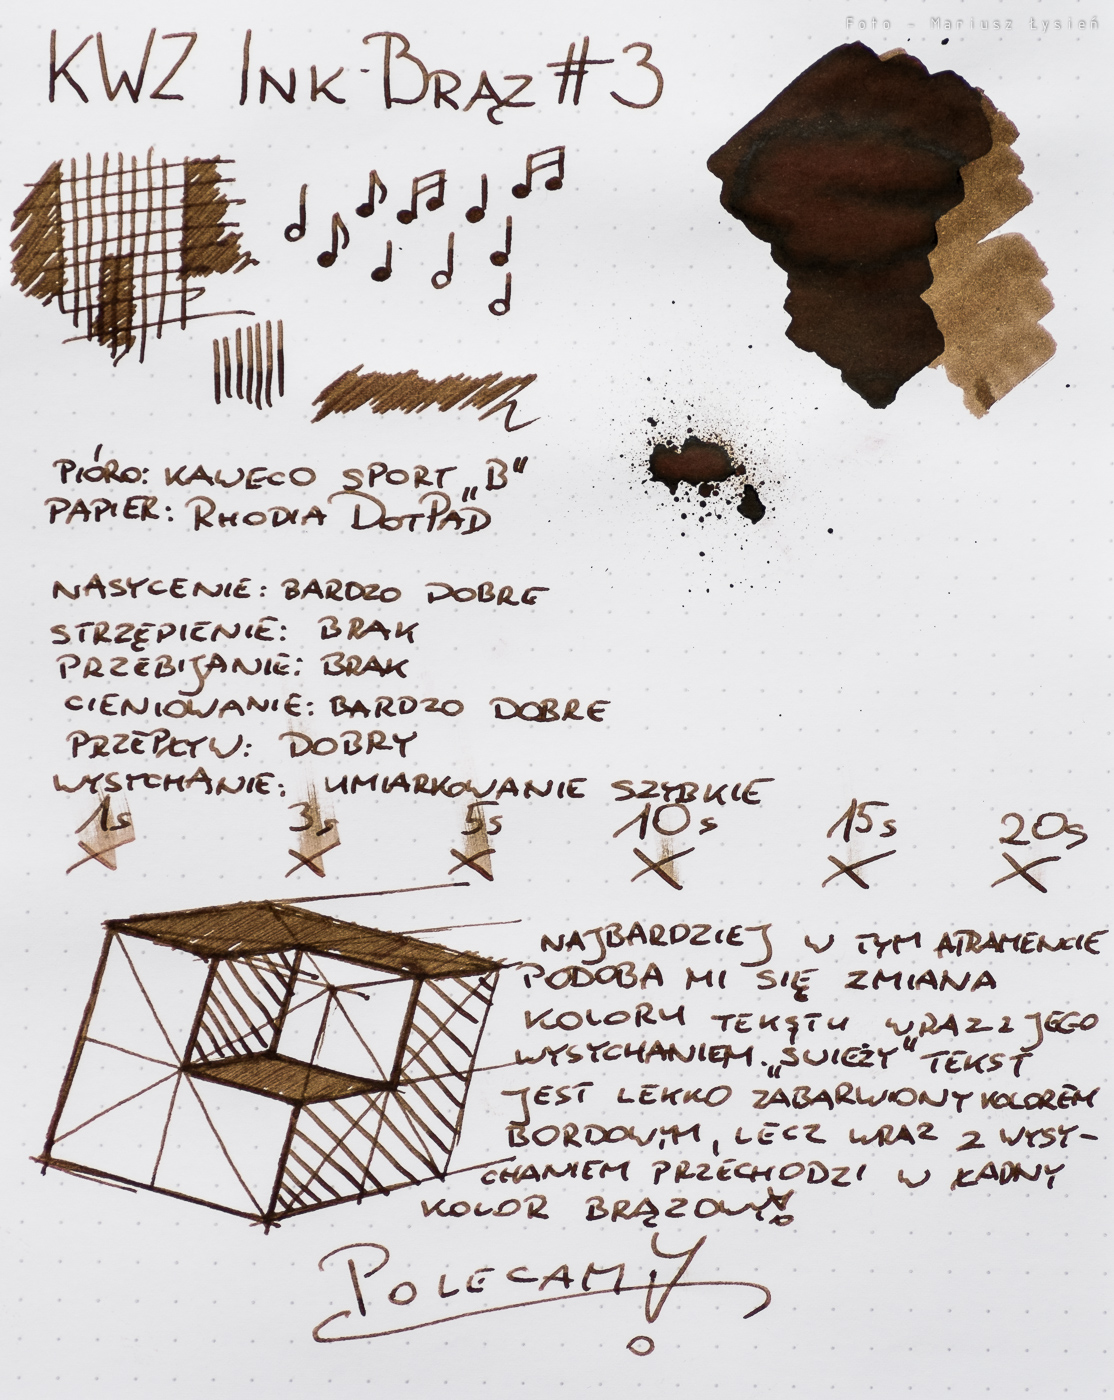 Foto - Mariusz Łysień
KWZ INK-BRĄZ #3
PIÓRO: KAWECO SPORT „B"
PAPIER: RHODIA DOTPAD
NASYCENIE: BARDZO DOBRE
STRZĘPIENIE: BRAK
PRZEBIJANIE: BRAK
CIENIOWANIE: BARDZO DOBRE
PRZEPŁYW: DOBRY
WYSYCHANIE: UMIARKOWANIE SZYBKIE
1s 3s 5s 10s 15s 20s
NAJBARDZIEJ W TYM ATRAMENCIE
PODOBA MI SIĘ ZMIANA
KOLORU TEKSTU WRAZ Z JEGO
WYSYCHANIEM. „ŚWIEŻY" TEKST
JEST LEKKO ZABARWIONY KOLOREM
BORDOWYM, LECZ WRAZ Z WYSY-
CHANIEM PRZECHODZI W ŁADNY
KOLOR BRĄZOWY!
POLECAMY